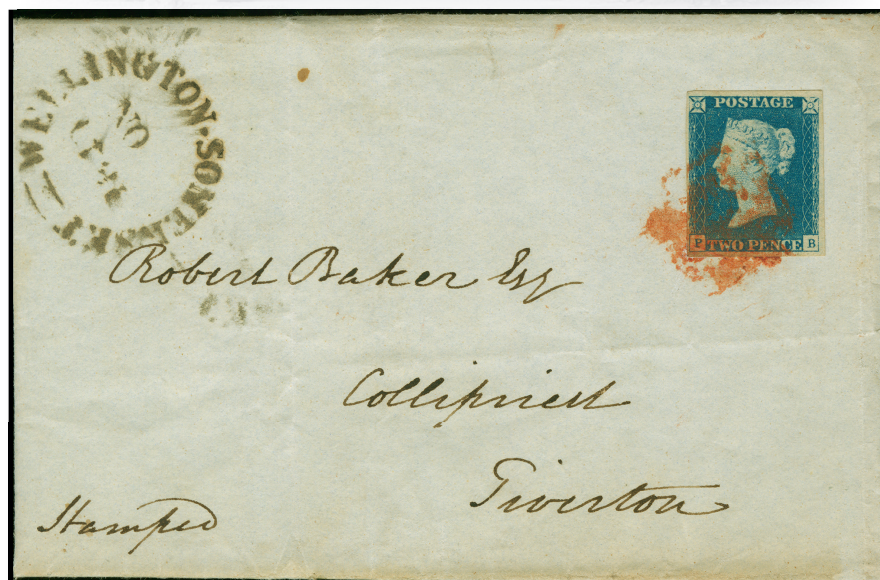 WELLINGTON·SOMERSET
NO
POSTAGE
P TWO PENCE B
Robert Baker Esq
Collipriest
Tiverton
Stamped